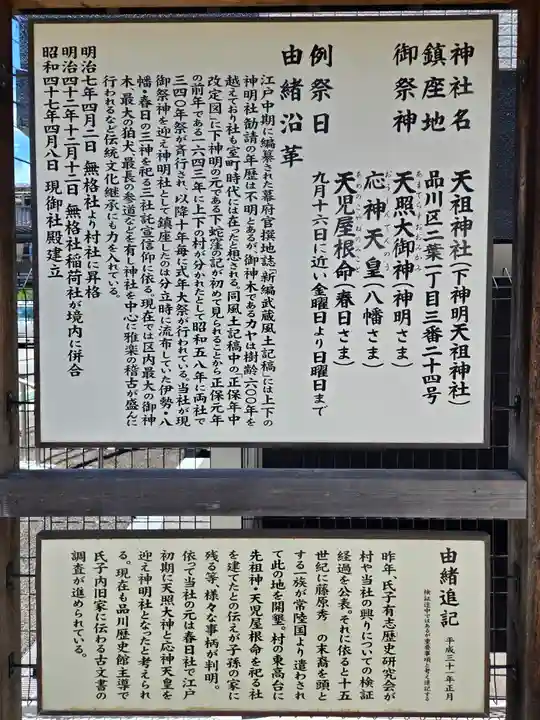 神社名　天祖神社（下神明天祖神社）
鎮座地　品川区二葉一丁目三番二十四号
御祭神　天照大御神（神明さま）
あまてらすおおみかみ
応神天皇（八幡さま）
おうじんてんのう
天児屋根命（春日さま）
あめのこやねのみこと
例祭日　九月十六日に近い金曜日より日曜日まで
由緒沿革
江戸中期に編纂された幕府官撰地誌「新編武蔵風土記稿」には上下の
神明社勧請の年歴は不明とあるが、御神木であるカヤは樹齢六〇〇年を
越えており社も室町時代には在ったと想される。同風土記稿中の「正保年中
改定図」に下神明の元である下蛇窪の記が初めて見られることから正保元年
の前年である一六四三年に上下の村が分かれたとして昭和五八年に両社で
三四〇年祭が斉行され、以降十年毎に式年大祭が行われている。当社が現
御祭神を迎え神明社として鎮座したのは分立時に流布していた伊勢・八
幡・春日の三神を祀る三社託宣信仰に依る。現在では区内最大の御神
木、最大の狛犬、最長の参道などを有し神社を中心に雅楽の稽古が盛んに
行われるなど伝統文化継承にも力を入れている。
明治七年四月二日　無格社より村社に昇格
明治四十二年十二月十一日　無格社稲荷社が境内に併合
昭和四十七年四月八日　現御社殿建立
由緒追記　平成三十一年正月
検証途中ではあるが重要事項と考え追記する
昨年、氏子有志歴史研究会が
村や当社の興りについての検証
経過を公表。それに依ると十五
世紀に藤原秀　の末裔を頭と
する一族が常陸国より遣わされ
て此の地を開墾。村の東高台に
先祖神・天児屋根命を祀る社
を建てたとの伝えが子孫の家に
残る等、様々な事柄が判明。
依って当社の元は春日社で江戸
初期に天照大神と応神天皇を
迎え神明社となったと考えられ
る。現在も品川歴史館主導で
氏子内旧家に伝わる古文書の
調査が進められている。